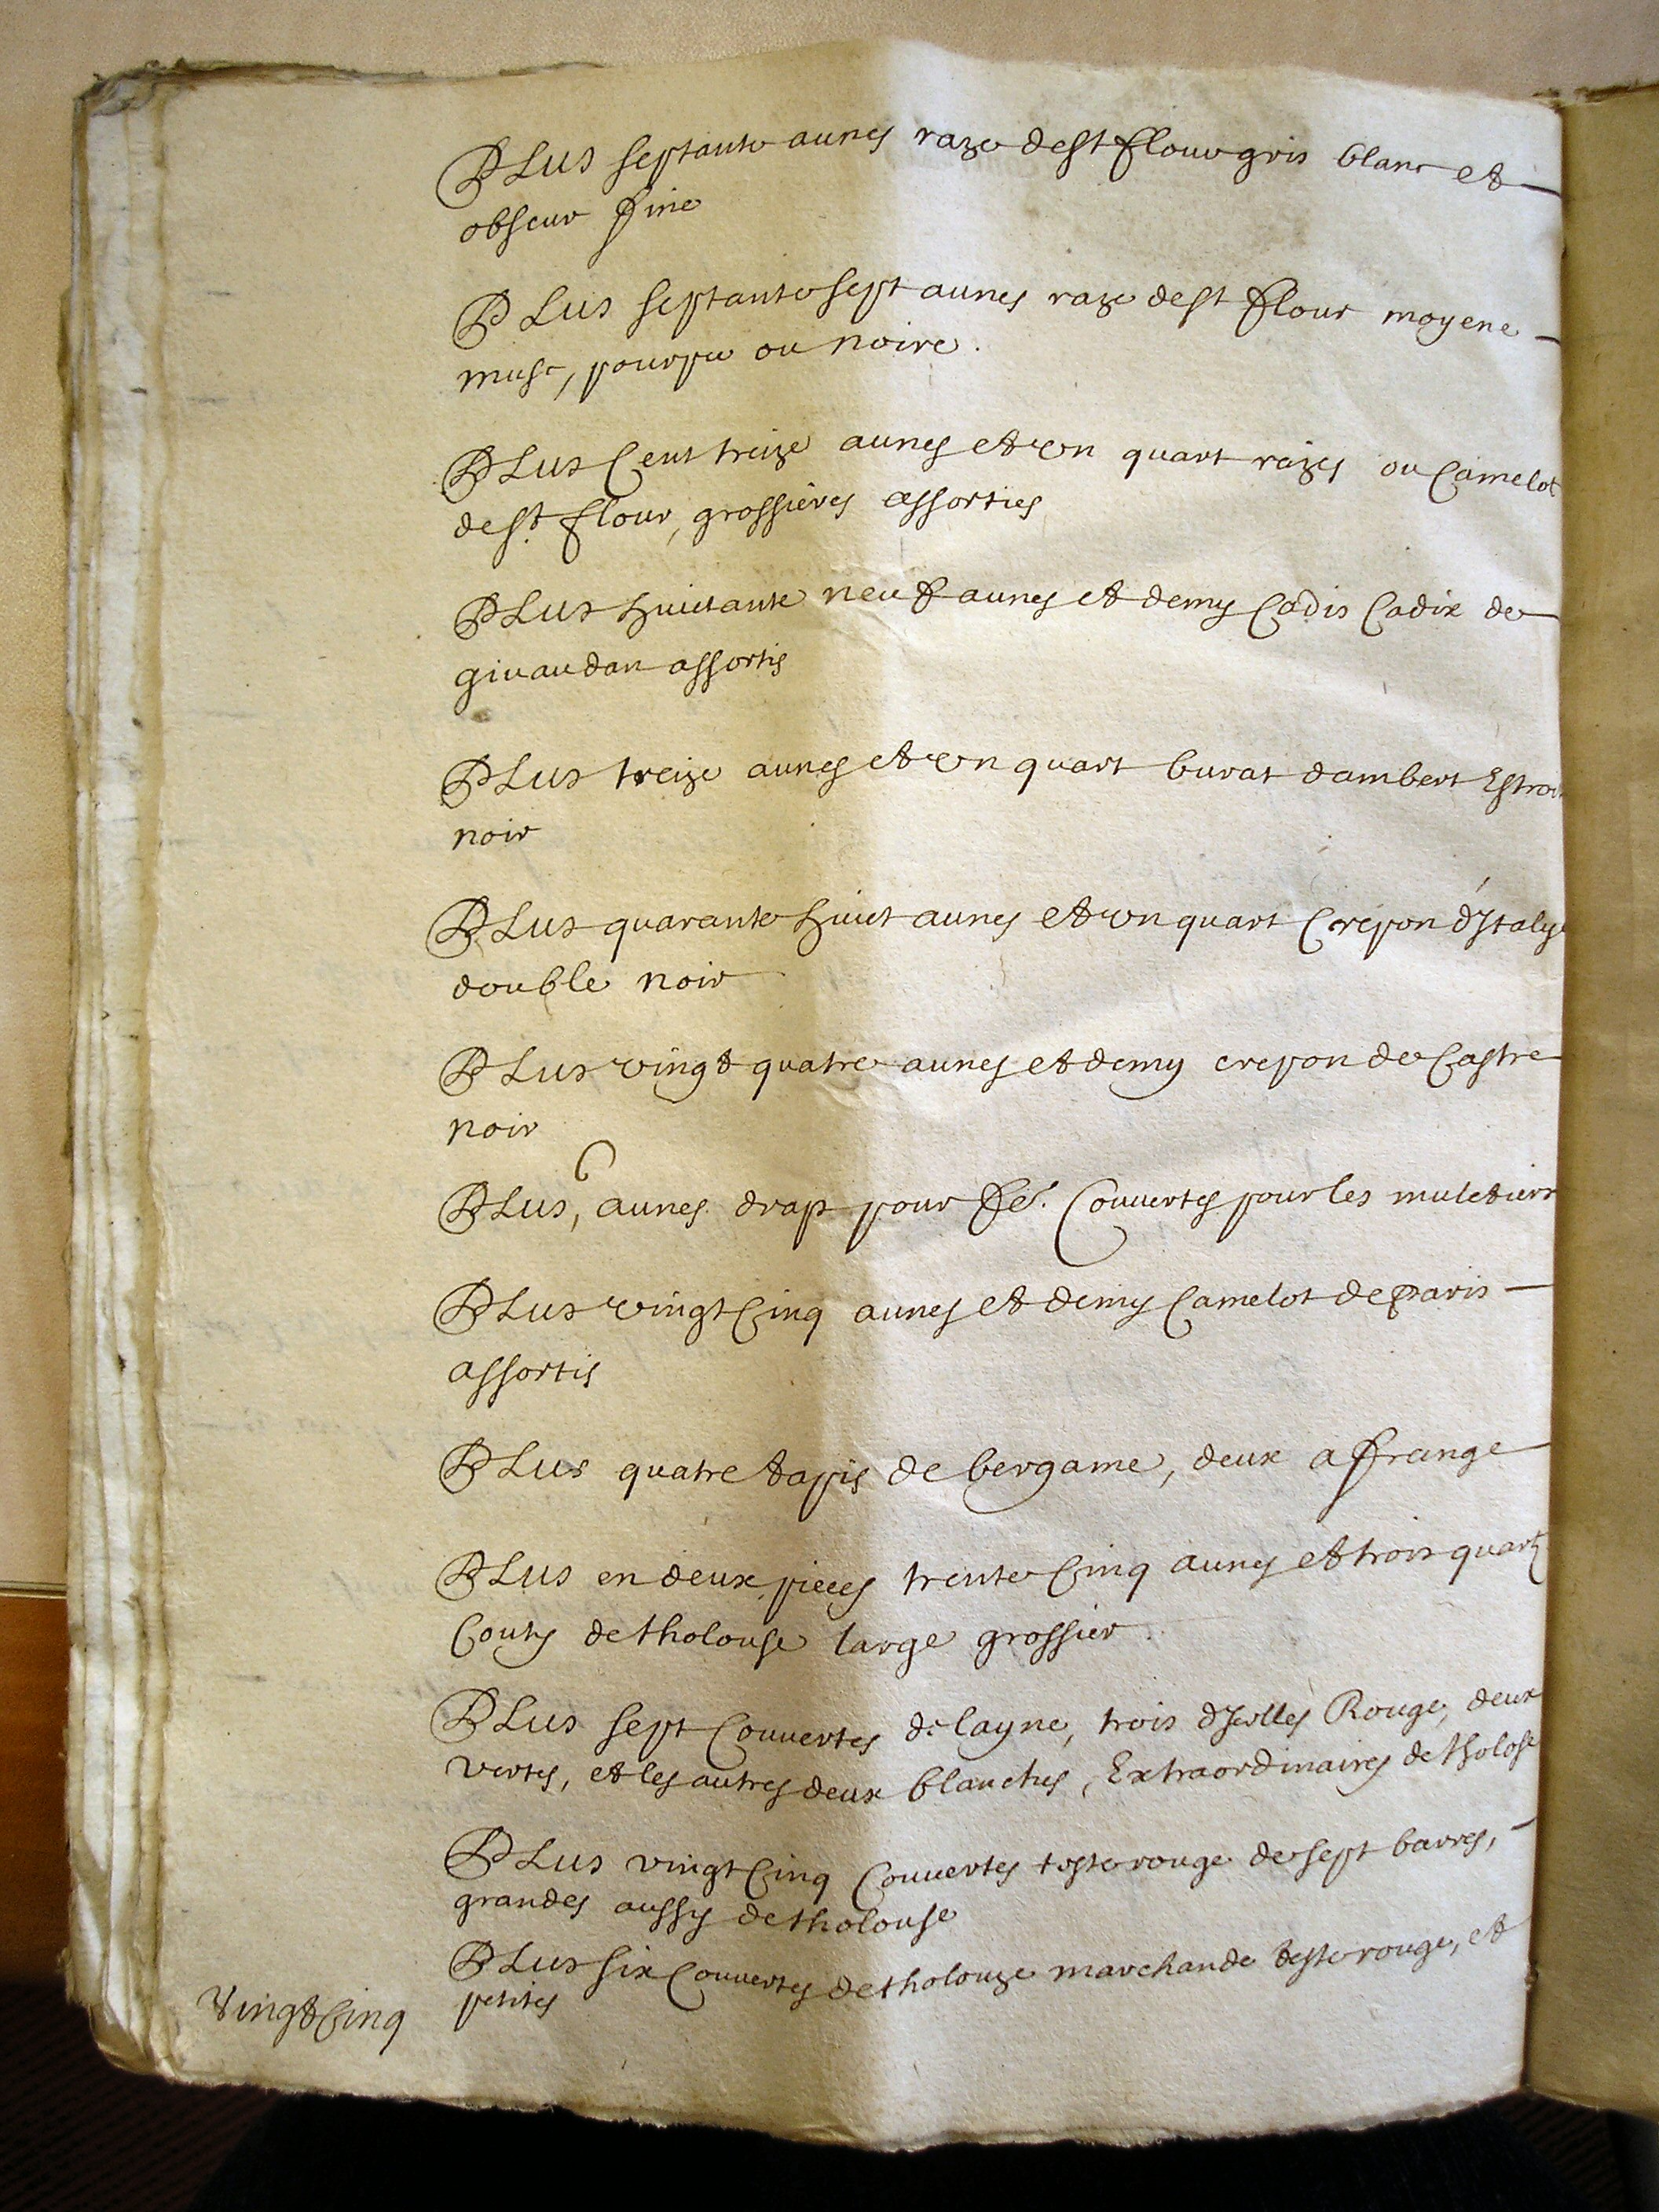 PLus septante aunes raze de st flour gris blanc et
obscur fine
PLus septante sept aunes raze de st flour moyene
musc, pourpre ou noire.
PLus Cent treize aunes et un quart razes ou Camelot
de st. flour, grossieres assorties
PLus huictante neuf aunes et demy Cadis Cadix de
givaudan assortis
PLus treize aunes et un quart burat dambert Estroit
noir
PLus quarante huict aunes et un quart Crepon d'Italye
double noir
PLus vingt quatre aunes et demy crepon de Castre
noir
PLus, 6 aunes drap pour Couvertes pour les muletiers
PLus vingt Cinq aunes et demy Camelot de paris
assortis
PLus quatre tapis de bergame, deux a frange
PLus en deux pieces trente Cinq aunes et trois quartz
Couty de tholouse large grossier.
PLus sept Couvertes de layne, trois dJcelles Rouge, deux
vertes, et les autres deux blanches, Extraordinaires de tholose
PLus vingt Cinq Couvertes teste rouge de sept barres,
grandes aussy de tholouse
PLus six Couvertes de tholouze marchande teste rouge, et
petites
Vingt Cinq